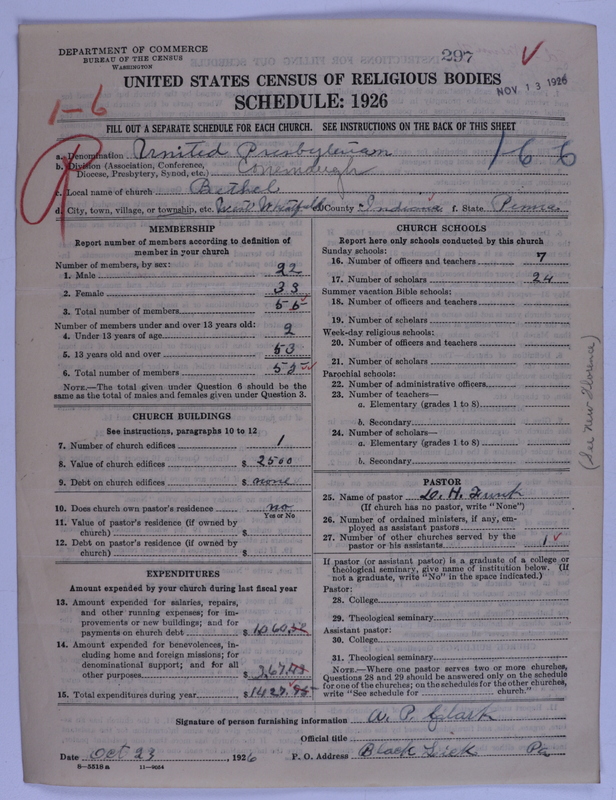 DEPARTMENT OF COMMERCE
BUREAU OF THE CENSUS
WASHINGTON
297
NOV 13 1926
UNITED STATES CENSUS OF RELIGIOUS BODIES
SCHEDULE: 1926
1-6
FILL OUT A SEPARATE SCHEDULE FOR EACH CHURCH. SEE INSTRUCTIONS ON THE BACK OF THIS SHEET
R
166
a. Denomination United Presbyterian
b. Division (Association, Conference, Diocese, Presbytery, Synod, etc.) Conemaugh
c. Local name of church Bethel
d. City, town, village, or township, etc. e. County Indiana f. State Penna
MEMBERSHIP
Report number of members according to definition of member in your church
Number of members, by sex:
1. Male 22
2. Female 33
3. Total number of members 55
Number of members under and over 13 years old:
4. Under 13 years of age 2
5. 13 years old and over 53
6. Total number of members 55
NOTE.—The total given under Question 6 should be the same as the total of males and females given under Question 3.
CHURCH BUILDINGS
See instructions, paragraphs 10 to 12
7. Number of church edifices 1
8. Value of church edifices $ 2500
9. Debt on church edifices $ none
10. Does church own pastor's residence no
Yes or No
11. Value of pastor's residence (if owned by church) $
12. Debt on pastor's residence (if owned by church) $
EXPENDITURES
Amount expended by your church during last fiscal year
13. Amount expended for salaries, repairs, and other running expenses; for improvements or new buildings; and for payments on church debt $ 1060
14. Amount expended for benevolences, including home and foreign missions; for denominational support; and for all other purposes $ 367
15. Total expenditures during year $ 1427
CHURCH SCHOOLS
Report here only schools conducted by this church
Sunday schools:
16. Number of officers and teachers 7
17. Number of scholars 24
Summer vacation Bible schools:
18. Number of officers and teachers
19. Number of scholars
Week-day religious schools:
20. Number of officers and teachers
21. Number of scholars
Parochial schools:
22. Number of administrative officers
23. Number of teachers—
a. Elementary (grades 1 to 8)
b. Secondary
24. Number of scholars—
a. Elementary (grades 1 to 8)
b. Secondary
(See New Florence)
PASTOR
25. Name of pastor D. H. Funk
(If church has no pastor, write "None")
26. Number of ordained ministers, if any, employed as assistant pastors
27. Number of other churches served by the pastor or his assistants 1
If pastor (or assistant pastor) is a graduate of a college or theological seminary, give name of institution below. (If not a graduate, write "No" in the space indicated.)
Pastor:
28. College
29. Theological seminary
Assistant pastor:
30. College
31. Theological seminary
NOTE.—Where one pastor serves two or more churches, Questions 28 and 29 should be answered only on the schedule for one of the churches; on the schedules for the other churches, write "See schedule for church."
Signature of person furnishing information W. P. Clark
Official title
Date Oct 23, 1926 P. O. Address Black Lick Pa
8—5518 a 11—9064